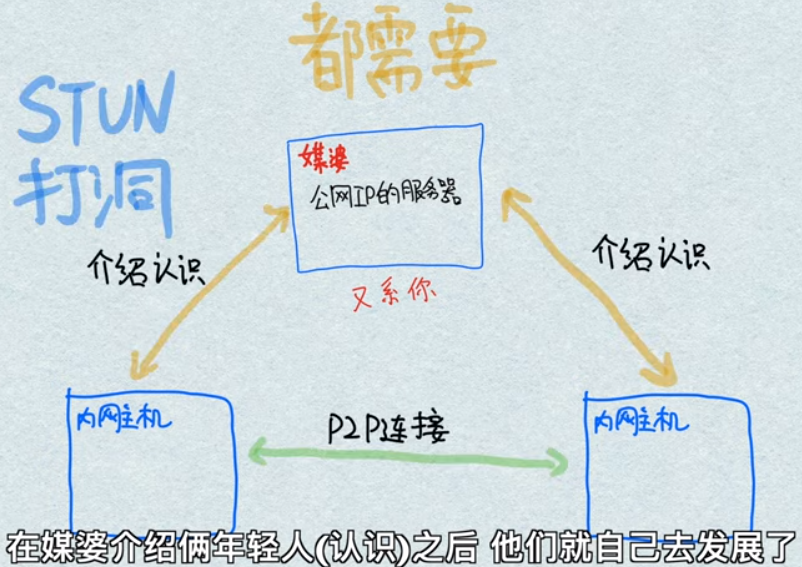 都需要
STUN
打洞
媒婆
公网IP的服务器
又系你
介绍认识
介绍认识
内网主机
P2P连接
内网主机
在媒婆介绍俩年轻人(认识)之后 他们就自己去发展了